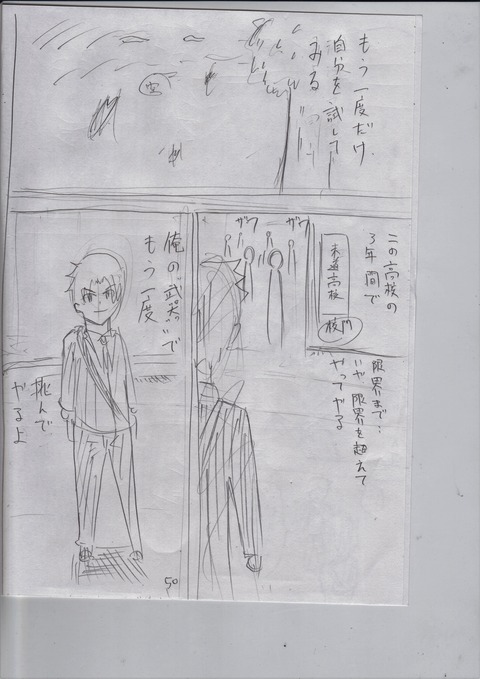 もう一度だけ
自分を試して
みる
空
この高校の
3年間で
未道高校
校門
ザワ
ザワ
限界まで…
いや限界を超えて
やってやる
俺の”武器”で
もう一度
挑んで
やるよ
50